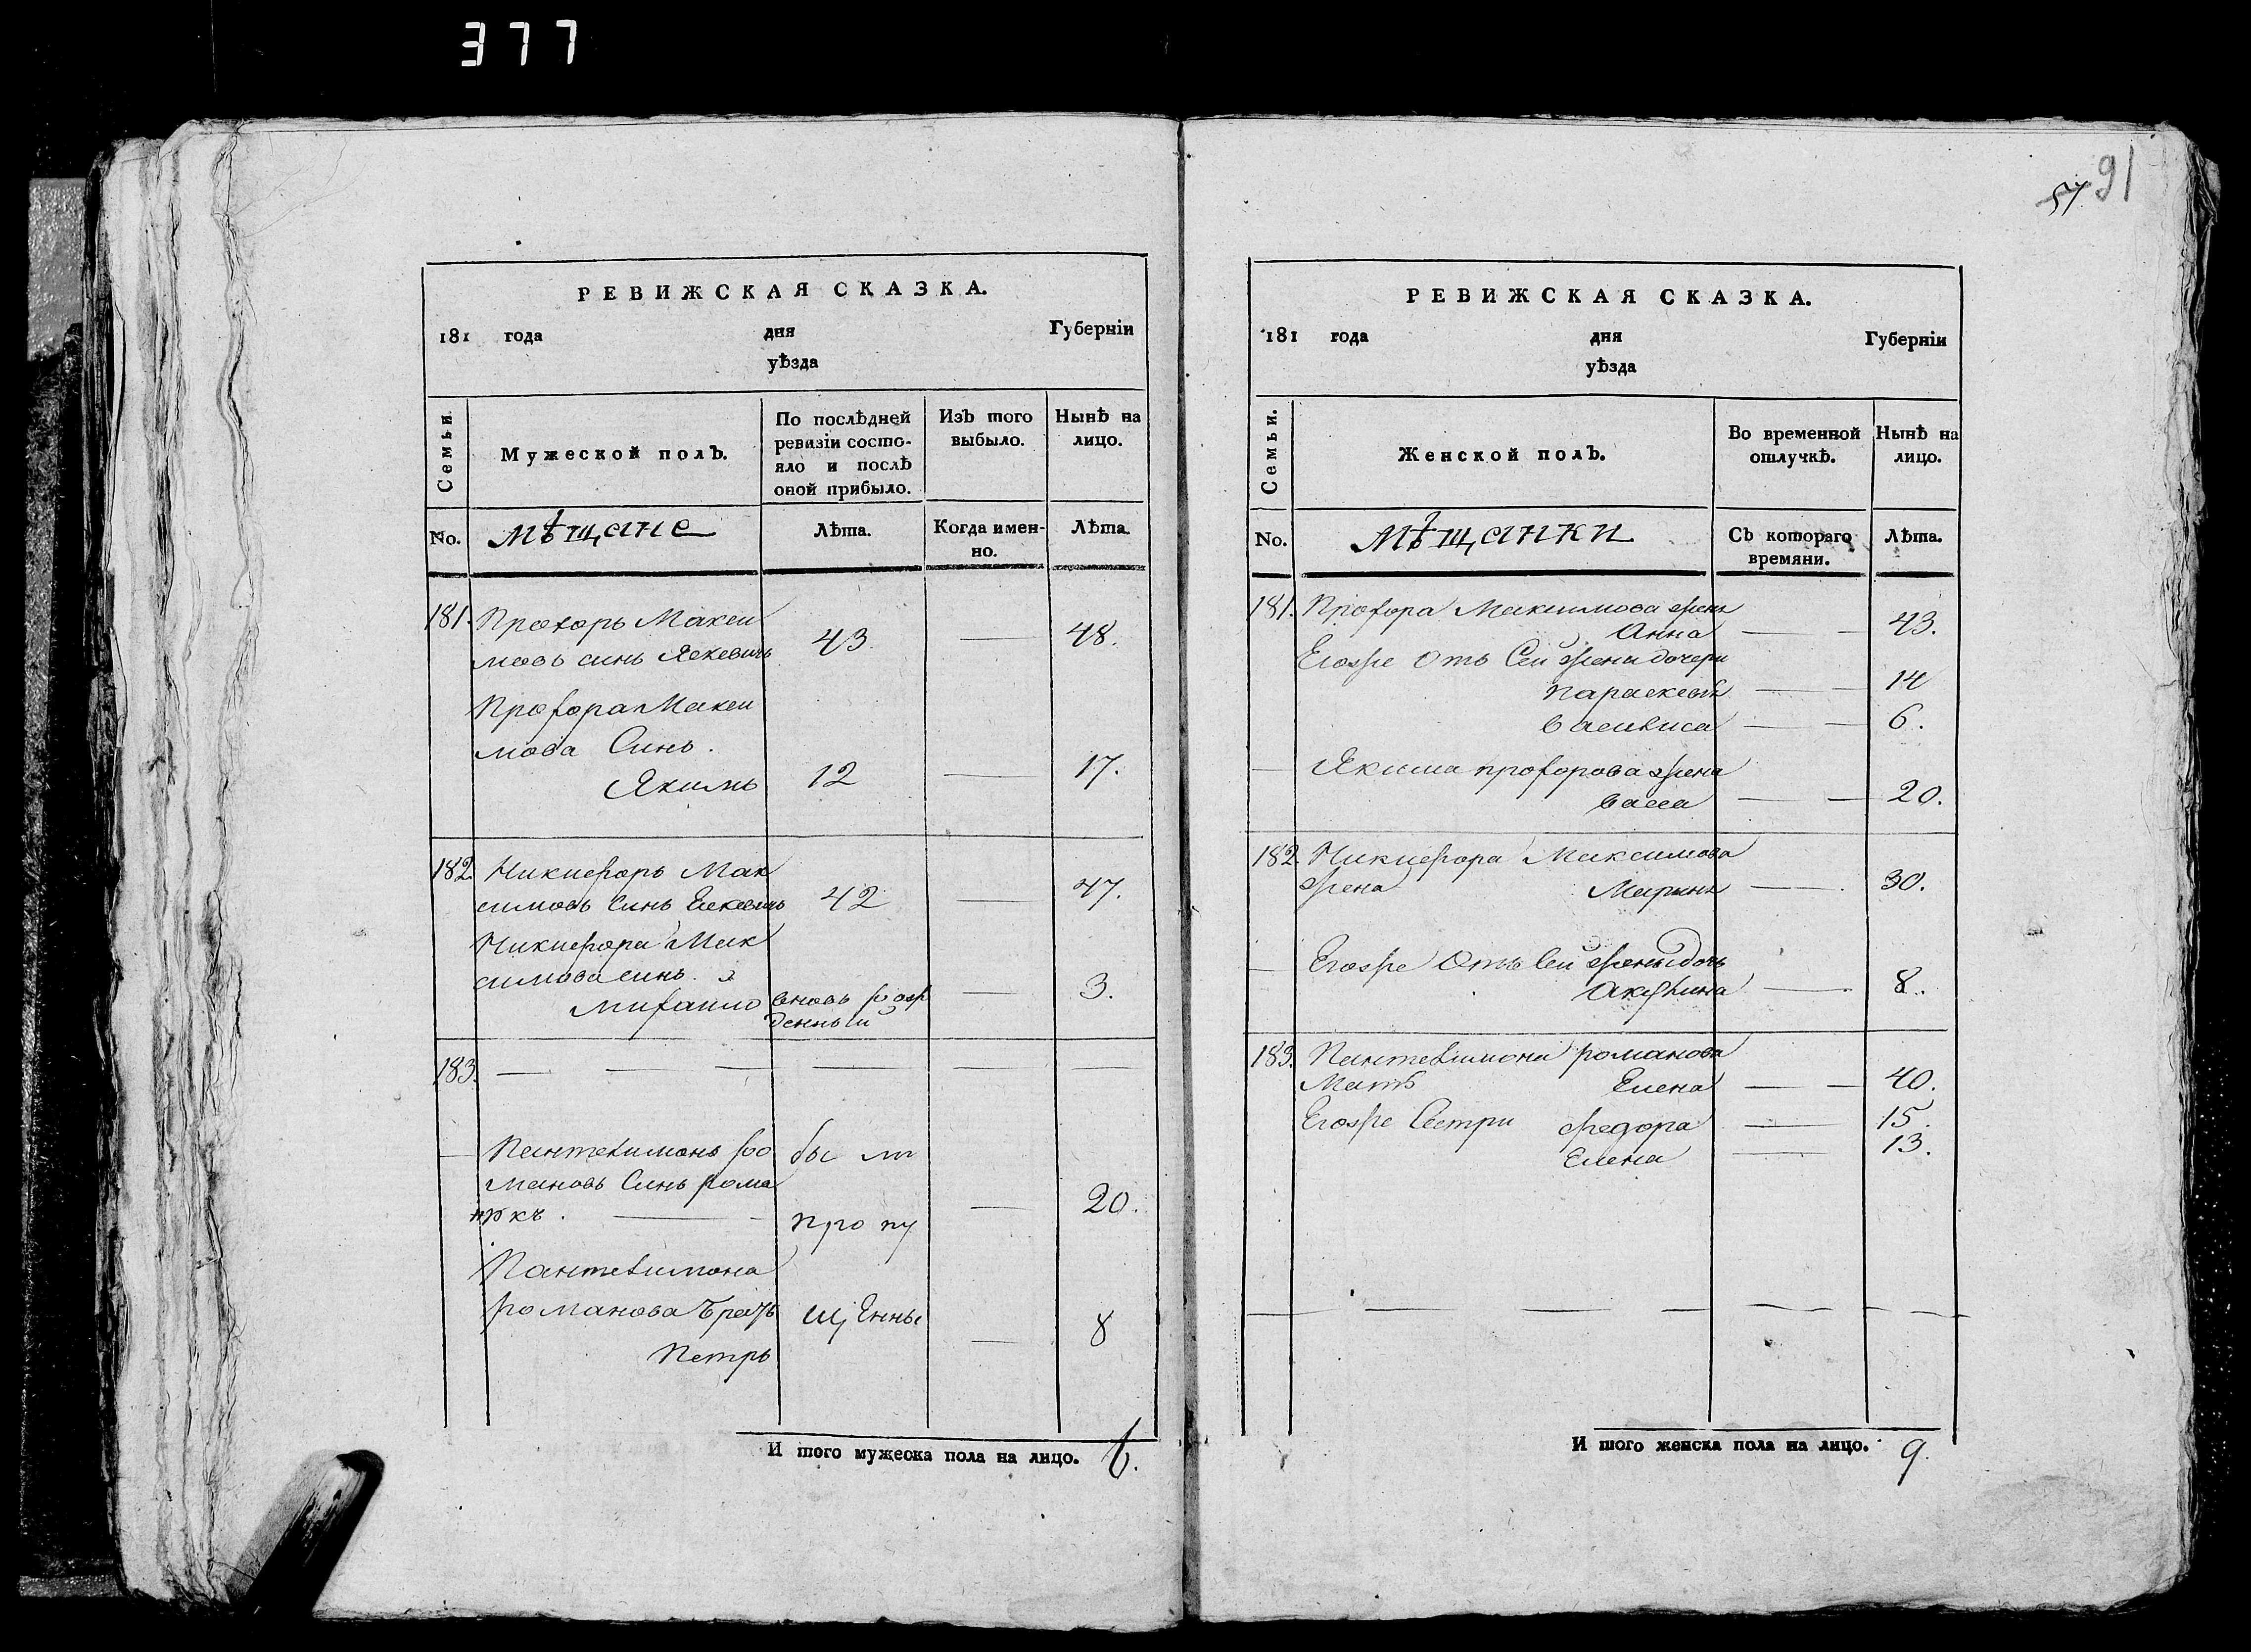 377
РЕВИЖСКАЯ СКАЗКА.
181 года дня Губерніи
уѣзда
Семьи
Мужеской полъ.
По послѣдней ревизіи состояло и послѣ оной прибыло.
Изъ того выбыло.
Нынѣ на лицо.
No. мѣщане Лѣта. Когда именно. Лѣта.
181. Прохоръ Макси
мовъ синъ Яскевичъ 43. — 48.
Прохора Макси
мова Синъ.
Якимъ 12 — 17.
182. Никифоръ Мак
симовъ Синъ Ескевичъ 42 — 47.
Никифора Мак
симова синъ.
Михаило вновь рож — 3.
денный
183. — — — — — —
— Пантелимонъ ро бы ли
мановъ Синъ рома
 . — про пу — 20.
Пантелимона
романова братъ щенны — 8
Петръ
И того мужеска пола на лицо. 6.
57 91
РЕВИЖСКАЯ СКАЗКА.
181 года дня Губерніи
уѣзда
Семьи.
Женской полъ.
Во временной отлучкѣ.
Нынѣ на лицо.
No. мѣщанки Съ котораго времяни. Лѣта.
181. Прохора Максимова жена
Анна — — 43.
Егоже отъ Сей жены дочери
параскевія — — 14
василиса — — 6.
— Якима прохорова жена
васса — — 20.
182. Никифора Максимова
жена Марина — 30.
— Егоже Отъ Сей жены дочь
Акулина — 8.
183. Пантелимона романова
Мать Елена — — 40.
Егоже Сестри федора — 15.
Елена — 13.
И того женска пола на лицо. 9.